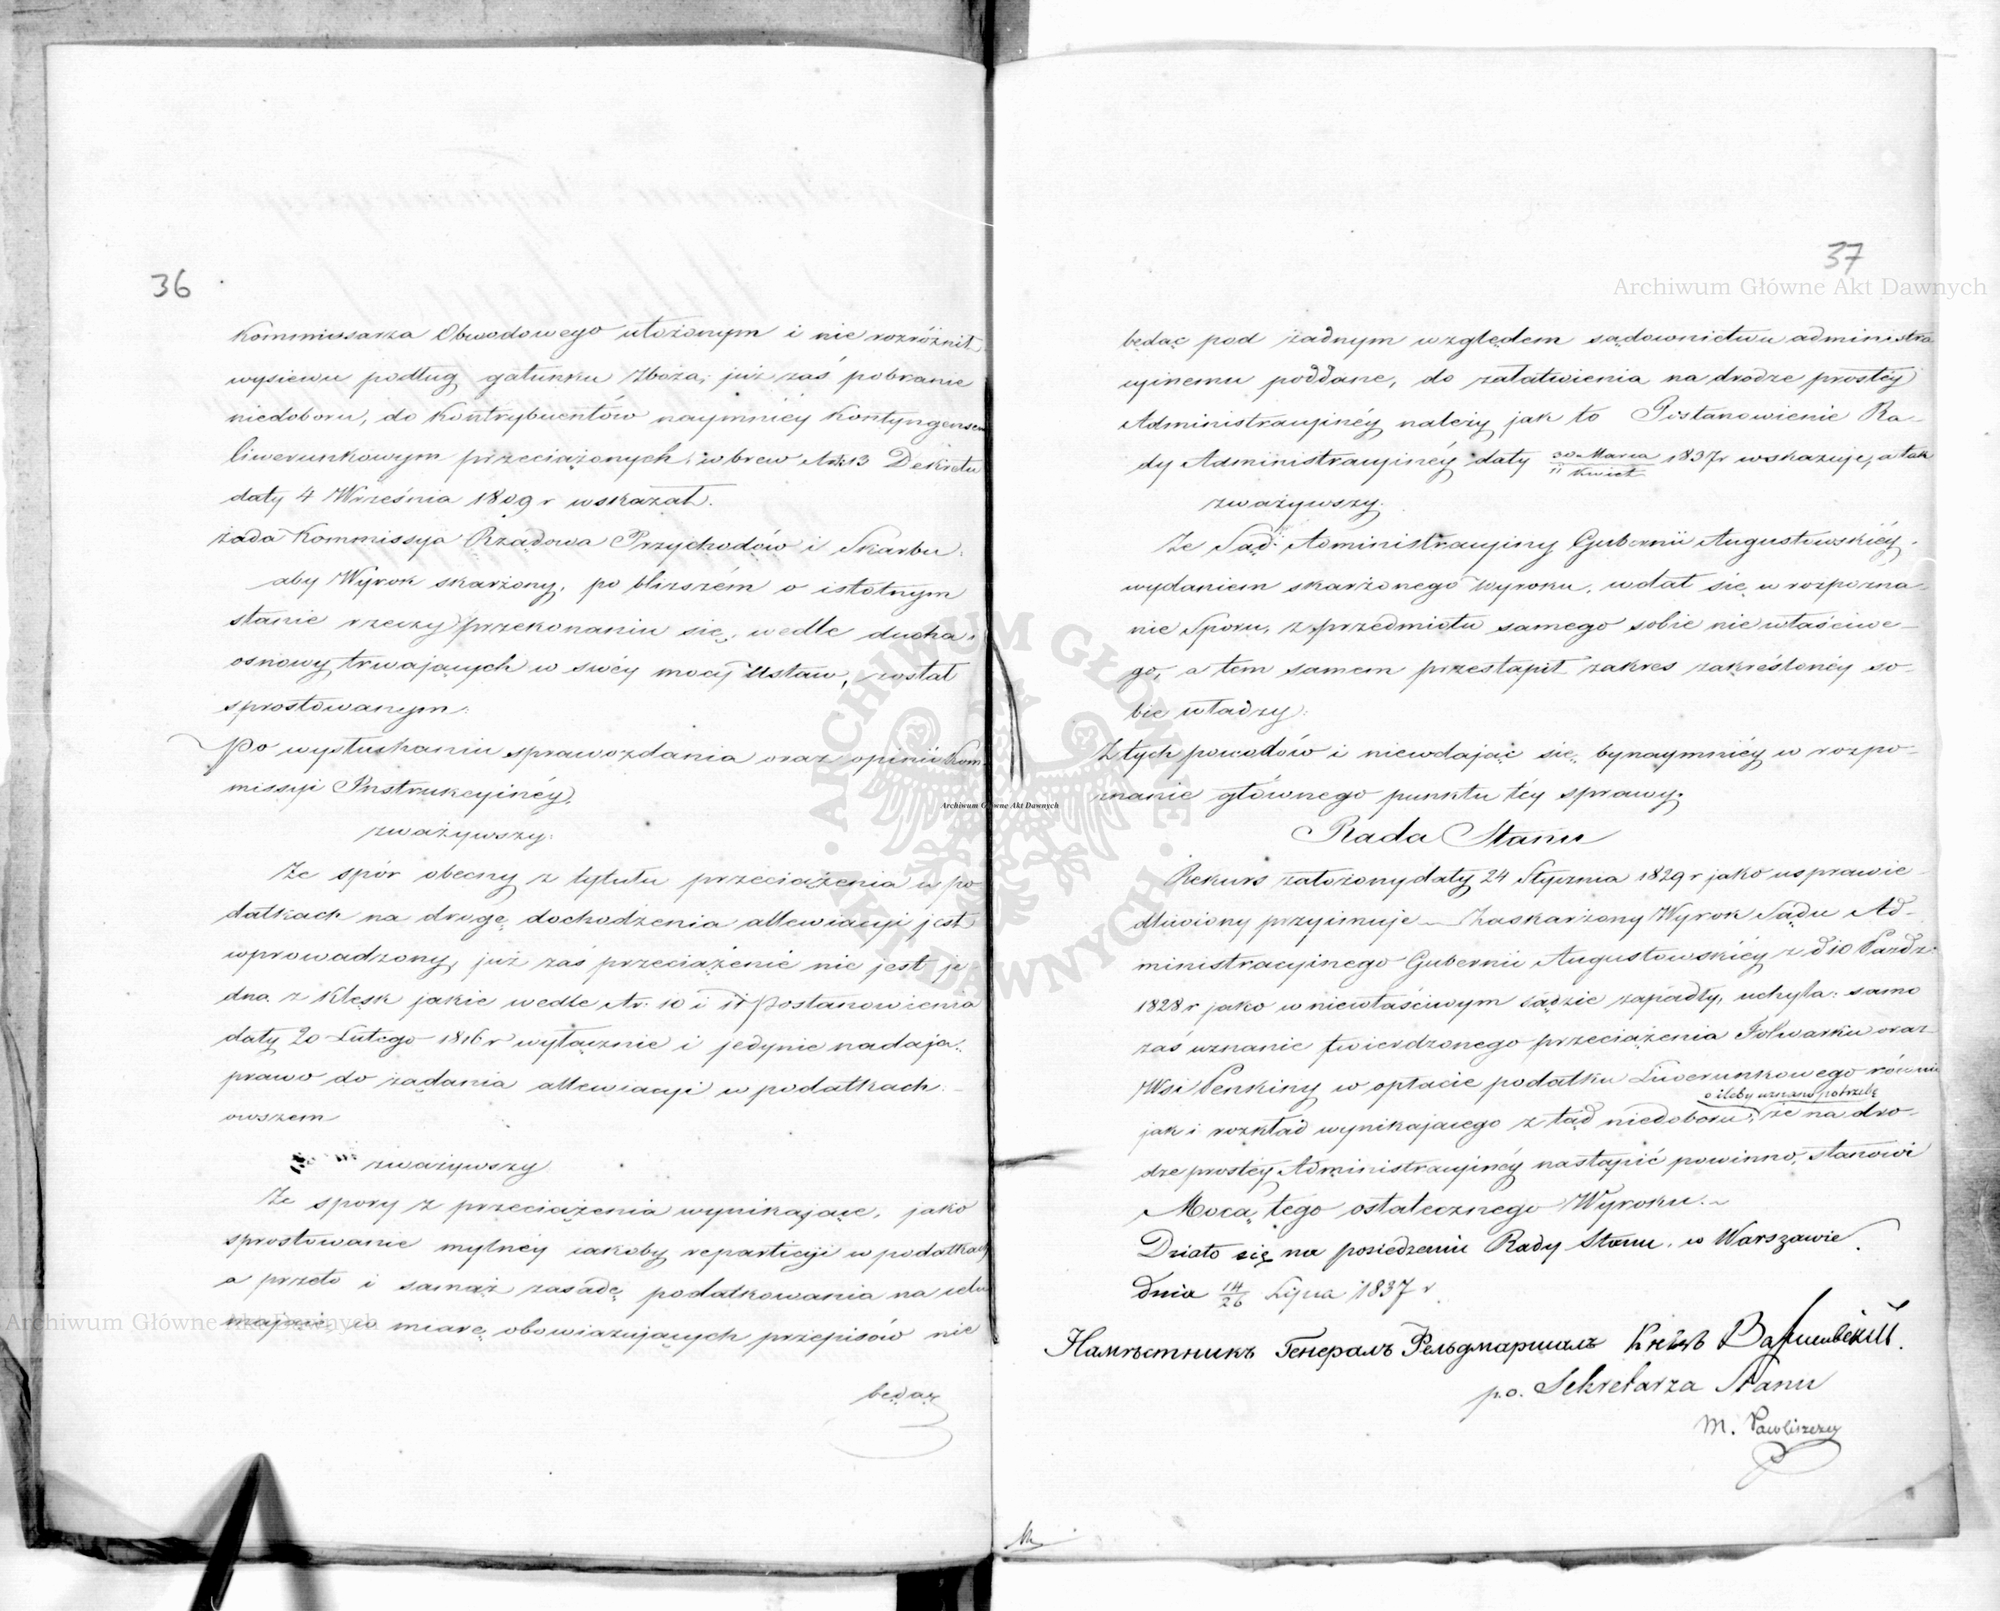 36
Kommissarza Obwodowego ułożonym i nie rozróżnił
wysiewu podług gatunku Zboża; już zaś pobranie
niedoboru, do Kontrybuentów naymniéy Kontyngensem
liwerunkowym przeciążonych, wbrew Art: 13 Dekretu
daty 4 Września 1809 r wskazał.
żąda Kommissya Rządowa Przychodów i Skarbu.
aby Wyrok skarżony, po bliższém o istotnym
stanie rzeczy przekonaniu się, wedle ducha i
osnowy trwających w swéy mocy Ustaw, został
sprostowanym.
Po wysłuchaniu sprawozdania oraz opinii Kom
missyi Instrukcyinéy,
zważywszy:
Że spór obecny z tytułu przeciążenia w po
datkach na drogę dochodzenia allewiacyi jest
wprowadzony, już zaś przeciążenie nie jest je
dną z klęsk jakie wedle Ar. 10 i 11 Postanowienia
daty 20 Lutego 1816 r wyłącznie i jedynie nadają
prawo do żądania allewiacyi w podatkach.
owszem
zważywszy
Że spory z przeciążenia wynikające, jako
sprostowanie mylnéy jakoby reparticyi w podatkach
a przeto i samąż zasadę podatkowania na celu
mające, w miarę obowiązujących przepisów nie
będąc
37
Archiwum Główne Akt Dawnych
będąc pod żadnym względem sądownictwu administra
cyinemu poddane, do załatwienia na drodze prostéy
Administracyinéy należy jak to Postanowienie Ra-
dy Administracyinéy daty 30 Marca / 11 Kwiet 1837 r wskazuje, a tak
zważywszy.
Że Sąd Administracyiny Gubernii Augustowskiéy
wydaniem skarżonego wyroku, wdał się w rozpozna-
nie Sporu, z przedmiotu samego sobie niewłaściwe-
go, a tem samem przestąpił zakres zakreślonéy so-
bie władzy.
Z tych powodów i niewdając się bynaymniéy w rozpo-
znanie głównego punktu téy sprawy.
Rada Stanu
Rekurs założony daty 24 Stycznia 1829 r jako usprawie-
dliwiony przyimuje – Zaskarżony Wyrok Sądu Ad-
ministracyinego Gubernii Augustowskiéy z d 10 Paźdz:
1828 r jako w niewłaściwym sądzie zapadły, uchyla: samo
zaś uznanie twierdzonego przeciążenia Folwarku oraz
Wsi Penkiny w opłacie podatku Liwerunkowego równie
o ileby uznano potrzebę
jak i rozkład wynikającego z tąd niedoboru, że na dro-
dze prostéy Administracyinéy nastąpić powinno, stanowi
Mocą tego ostatecznego Wyroku. –
Działo się na posiedzeniu Rady Stanu, w Warszawie
dnia 14/26 Lipca 1837 r
Намѣстникъ Генералъ Фельдмаршалъ Князь Варшавскій.
p.o. Sekretarza Stanu
M. Pawliszczew
Archiwum Główne Akt Dawnych
Archiwum Główne Akt Dawnych
ARCHIWUM GŁÓWNE AKT DAWNYCH